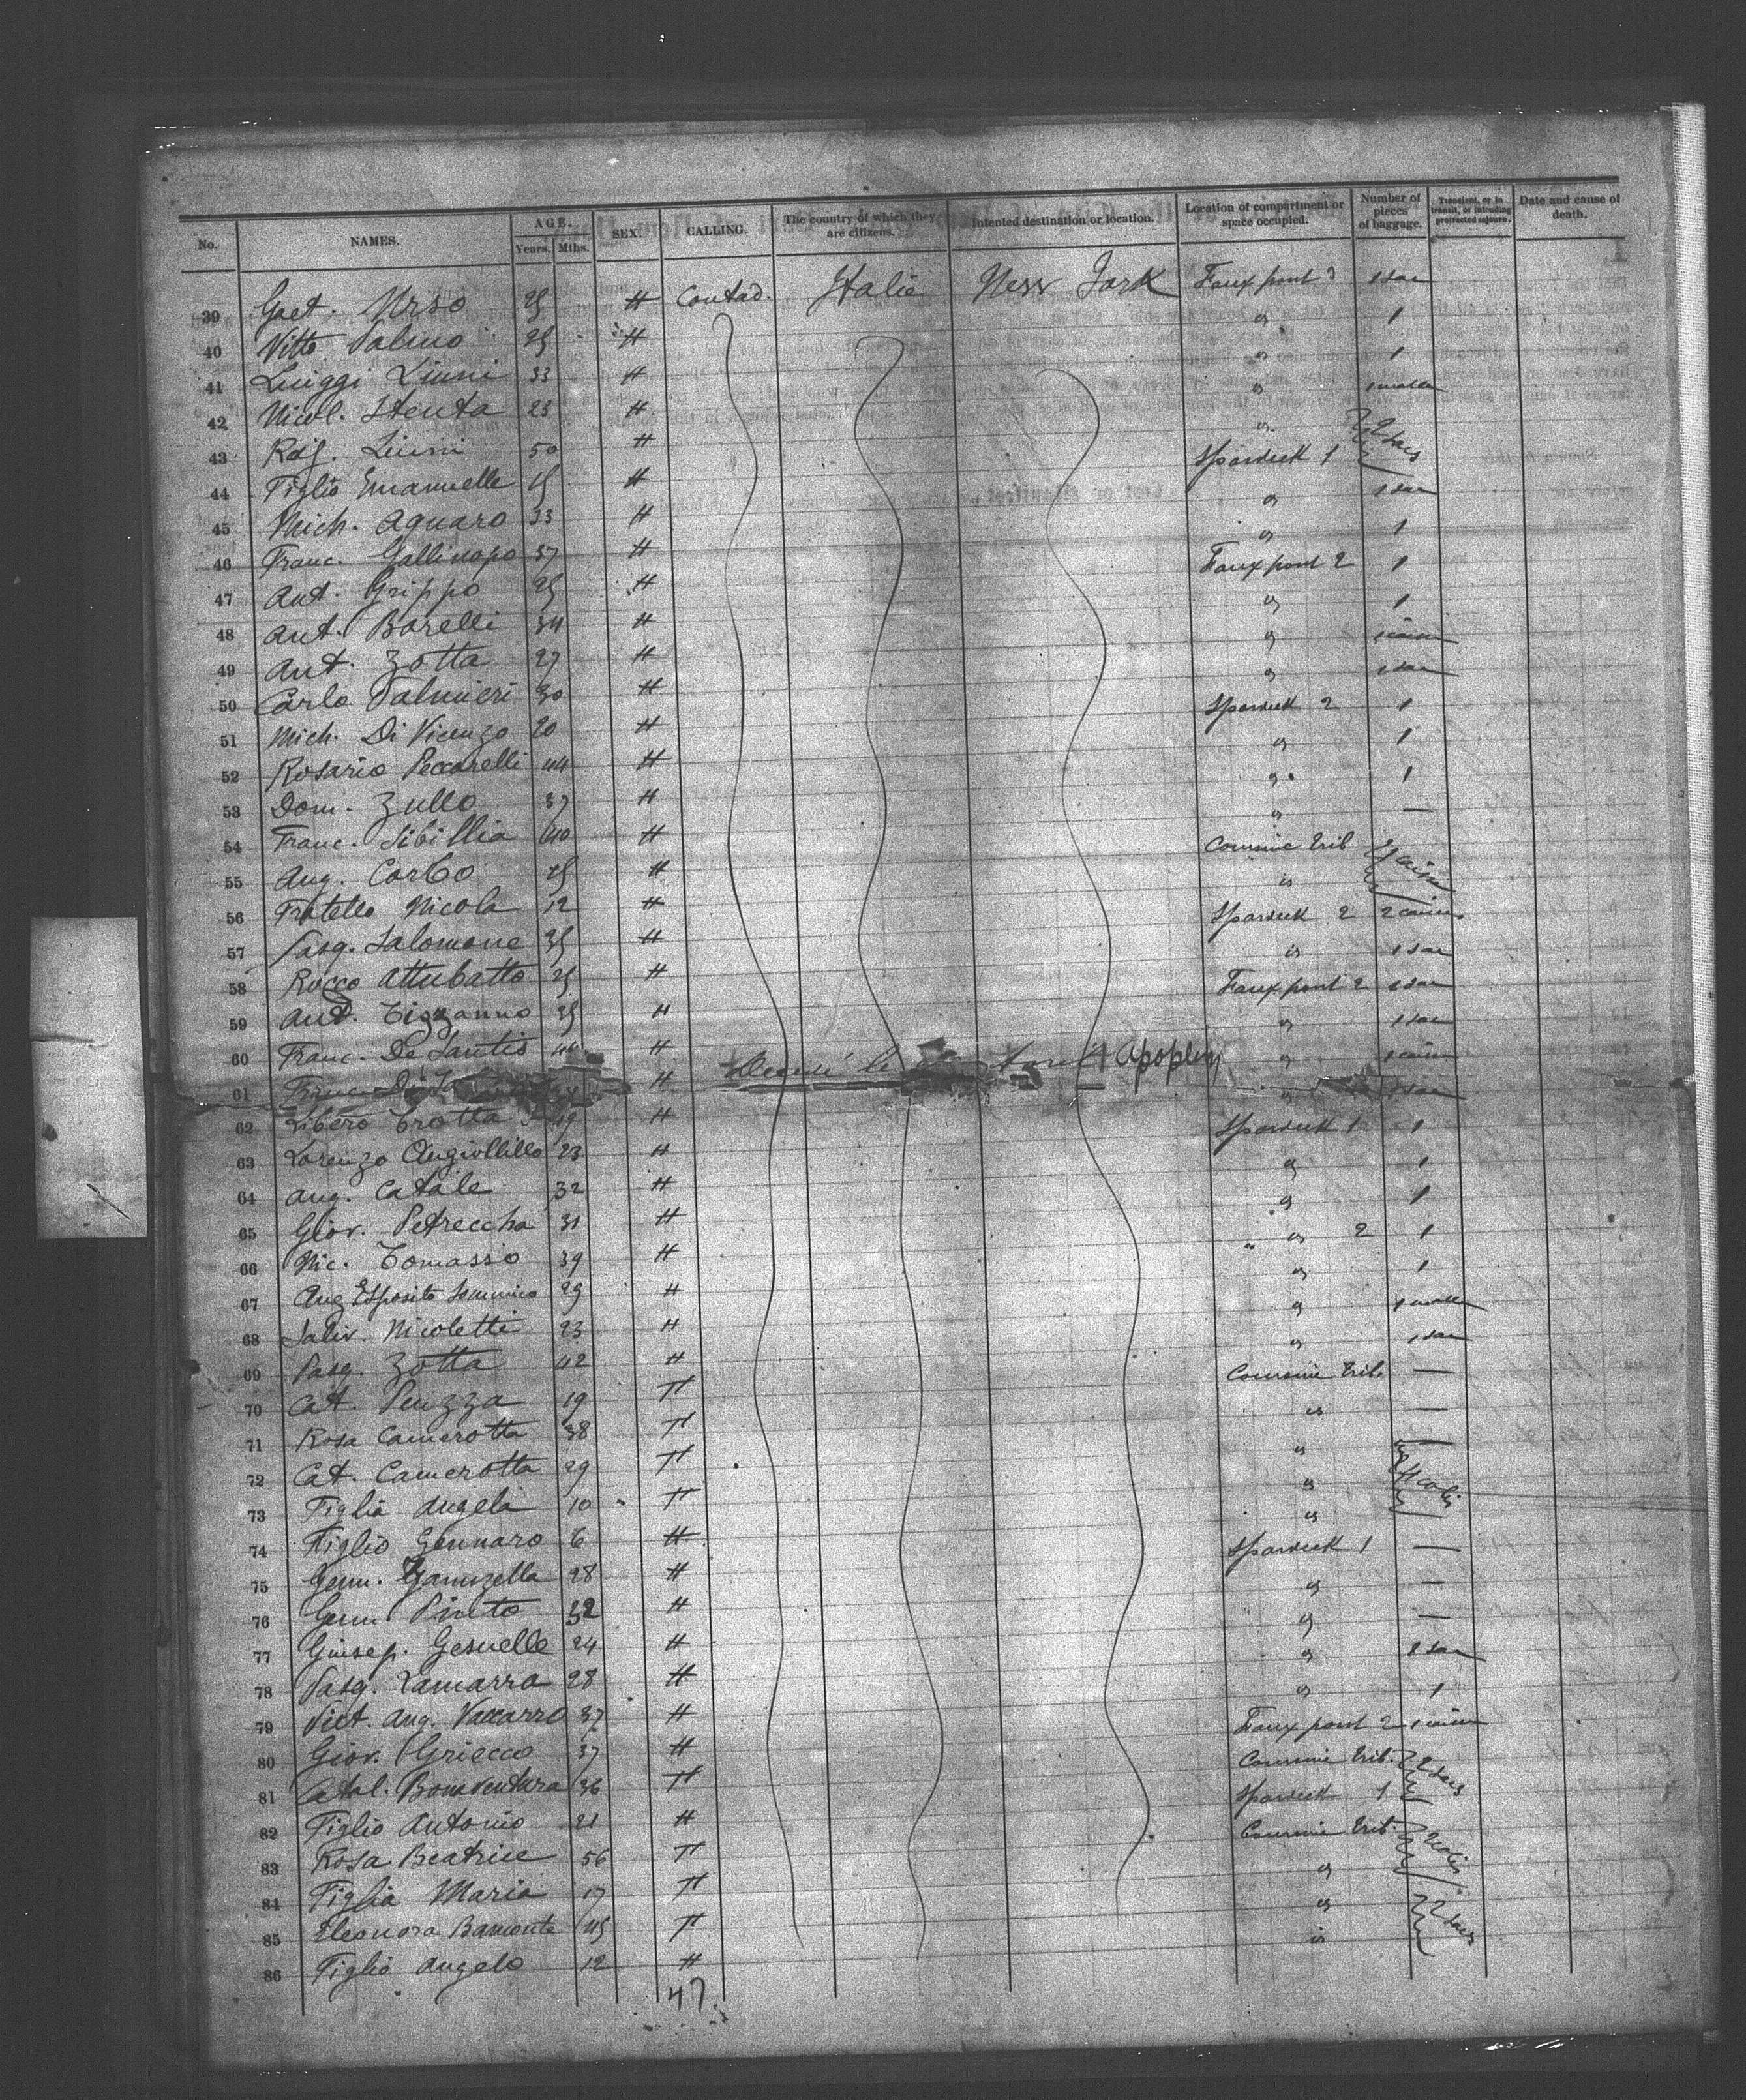 No. NAMES. AGE. Years. Mths. SEX. CALLING. The country of which they are citizens. Intented destination or location. Location of compartment or space occupied. Number of pieces of baggage. Transient, or in transit, or intending protracted sojourn. Date and cause of death.
39 Gaet. Urso 25 H Contad. Italie New York Faux pont 3 1 sac
40 Vitto Palmo 25 H " 1
41 Luiggi Liuni 33 H " 1
42 Nicol. Stenta 23 H " 1 malle
43 Raf. Liuni 50 H " 2 sacs
44 Figlio Emanuelle 15 H Spardeck 1
45 Mich. Aquaro 33 H " 1 sac
46 Franc. Gallinapo 37 H " 1
47 Ant. Grippo 25 H Faux pont 2 1
48 Ant. Borelli 34 H " 1
49 Ant. Zotta 27 H " 1 caisse
50 Carlo Palmieri 30 H " 1 sac
51 Mich. Di Vicenzo 20 H Spardeck 2 1
52 Rosario Peccorelli 44 H " 1
53 Dom. Zullo 37 H " 1
54 Franc. Sibillia 40 H " —
55 Ang. Corbo 25 H Coursive Trib
56 Fratello Nicola 12 H "
57 Pasq. Salomone 35 H Spardeck 2 2 caisses
58 Rocco Attubatto 25 H " 1 sac
59 Ant. Tizzanno 35 H Faux pont 2 1 sac
60 Franc. De Santis 44 H " 1 sac
61 Franc. H Décédé le Apoplexy " 1 caisse
62 Libero Trotta 19 H " 1 sac
63 Lorenzo Angiollillo 23 H Spardeck 1 1
64 Ang. Catale 32 H " 1
65 Giov. Petreccha 31 H " 1
66 Nic. Tomasso 39 H " " 2 1
67 Ang Esposito 29 H " 1
68 Saliv. Nicoletti 23 H " 1 malle
69 Pasq. Zotta 42 H " 1 sac
70 Cat. Peuzza 19 F Coursive Trib. —
71 Rosa Camerotta 38 F " —
72 Cat. Camerotta 29 F "
73 Figlia Angela 10 F " colis
74 Figlio Gennaro 6 H "
75 Genn. 28 H Spardeck 1 —
76 Genn. Pinto 32 H " —
77 Guisep. Gesuelle 24 H " —
78 Pasq. Lamarra 28 H " 1 sac
79 Vict. Ang. Vaccarro 37 H " 1
80 Giov. Griecco 37 H Faux pont 2 1 caisse
81 Catal. Bonaventura 36 F Coursive Trib. 2 sacs
82 Figlio Antonio 21 H Spardeck 1
83 Rosa Beatrice 56 F Coursive Trib. 2 colis
84 Figlia Maria 17 F "
85 Eleonora Bamonte 45 F " 2 sacs
86 Figlio Angelo 12 H "
47.